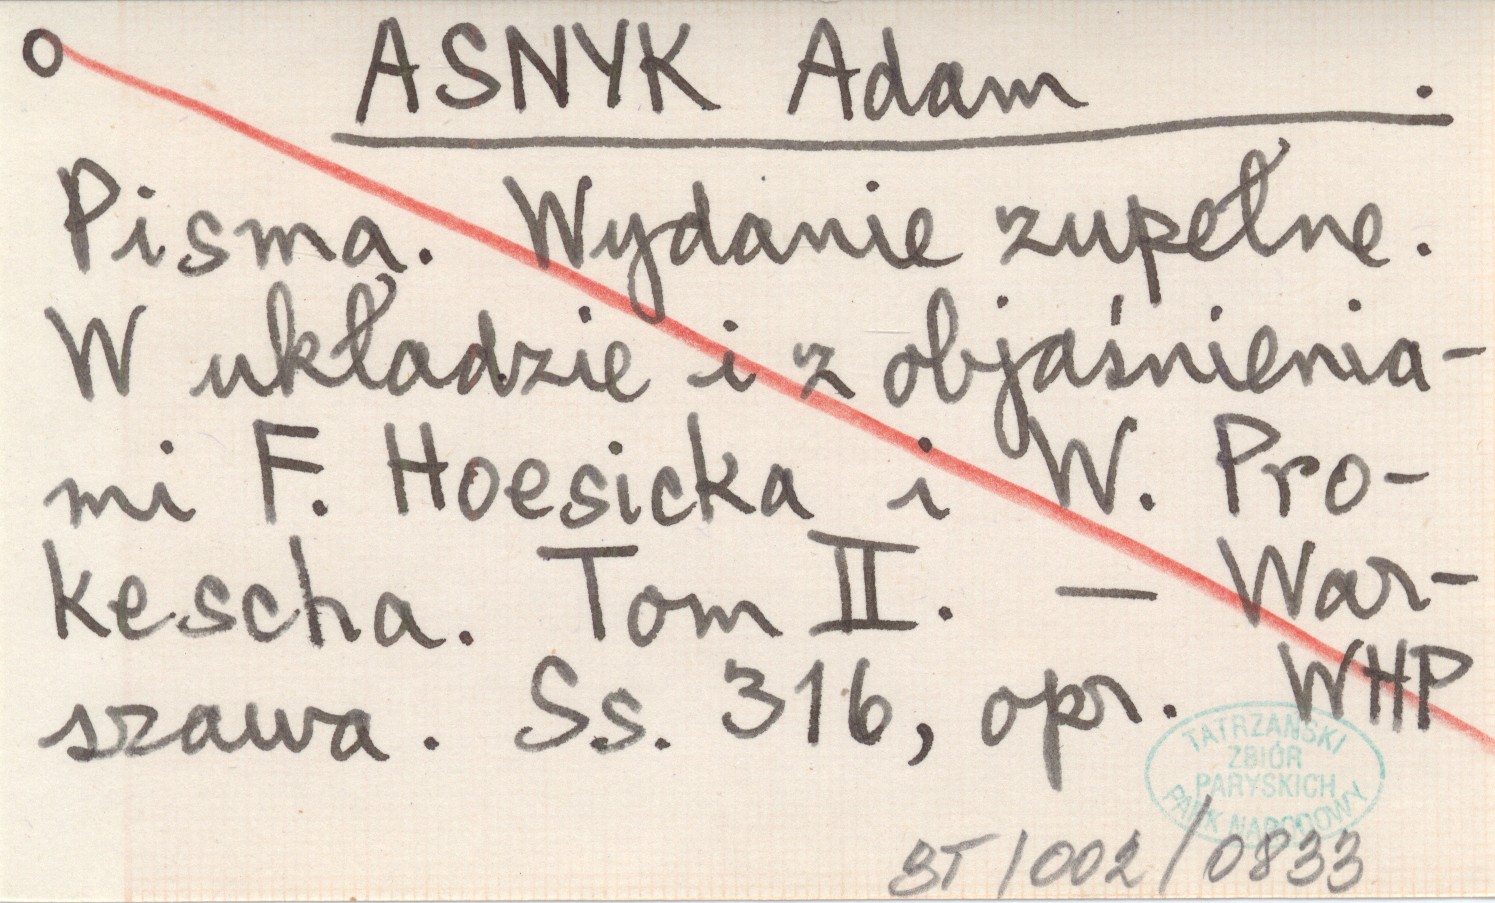 o ASNYK Adam .
Pisma. Wydanie zupełne.
W układzie i z objaśnienia-
mi F. Hoesicka i W. Pro-
kescha. Tom II. — War-
szawa. Ss. 316, opr. WHP
TATRZAŃSKI
ZBIÓR
PARYSKICH
PARK NARODOWY
BT/002/0833